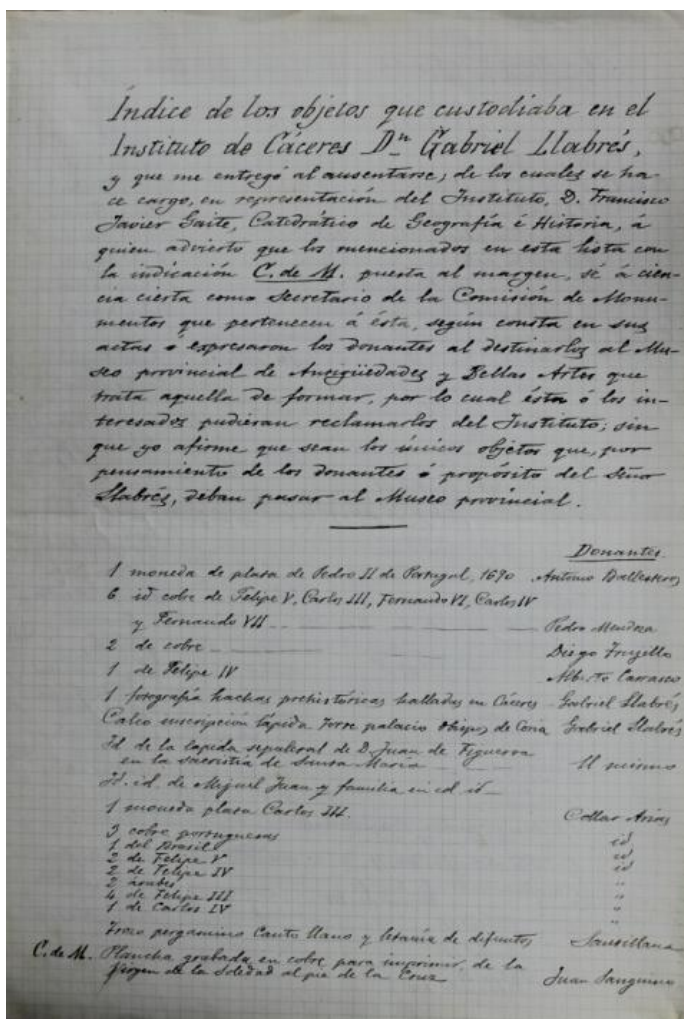 Índice de los objetos que custodiaba en el
Instituto de Cáceres Dn Gabriel Llabrés,
y que me entregó al ausentarse; de los cuales se ha-
ce cargo, en representación del Instituto, D. Francisco
Javier Gaite, Catedrático de Geografía é Historia, á
quien advierto que los mencionados en esta lista con
la indicación C. de M. puesta al margen, sé á cien-
cia cierta como Secretario de la Comisión de Monu-
mentos que pertenecen á ésta, según consta en sus
actas ó expresaron los donantes al destinarlos al Mu-
seo provincial de Antigüedades y Bellas Artes que
trata aquella de formar, por lo cual ésta ó los in-
teresados pudieran reclamarlos del Instituto; sin
que yo afirme que sean los únicos objetos que, por
pensamiento de los donantes ó propósito del Señor
Llabrés, deban pasar al Museo provincial.
Donantes
1 moneda de plata de Pedro II de Portugal, 1690 Antonio Ballesteros
6 id cobre de Felipe V, Carlos III, Fernando VI, Carlos IV
y Fernando VII Pedro Mendoza
2 de cobre Diego Trujillo
1 de Felipe IV Alberto Carrasco
1 fotografía hachas prehistóricas halladas en Cáceres Gabriel Llabrés
Calco inscripción lápida Torre palacio Obispos de Coria Gabriel Llabrés
Id de la lápida sepulcral de D. Juan de Figueroa
en la sacristía de Santa María El mismo
Id. id. de Miguel Juan y familia en id. id
1 moneda plata Carlos III. Collar Arias
3 cobre portuguesas id
1 del Brasil id
2 de Felipe V id
2 de Felipe IV "
2 árabes "
4 de Felipe III "
1 de Carlos IV "
Trozo pergamino Canto llano y letanía de difuntos Santillana
C. de M. Plancha grabada en cobre para imprimir, de la
Virgen de la Soledad al pie de la Cruz Juan Sanguino